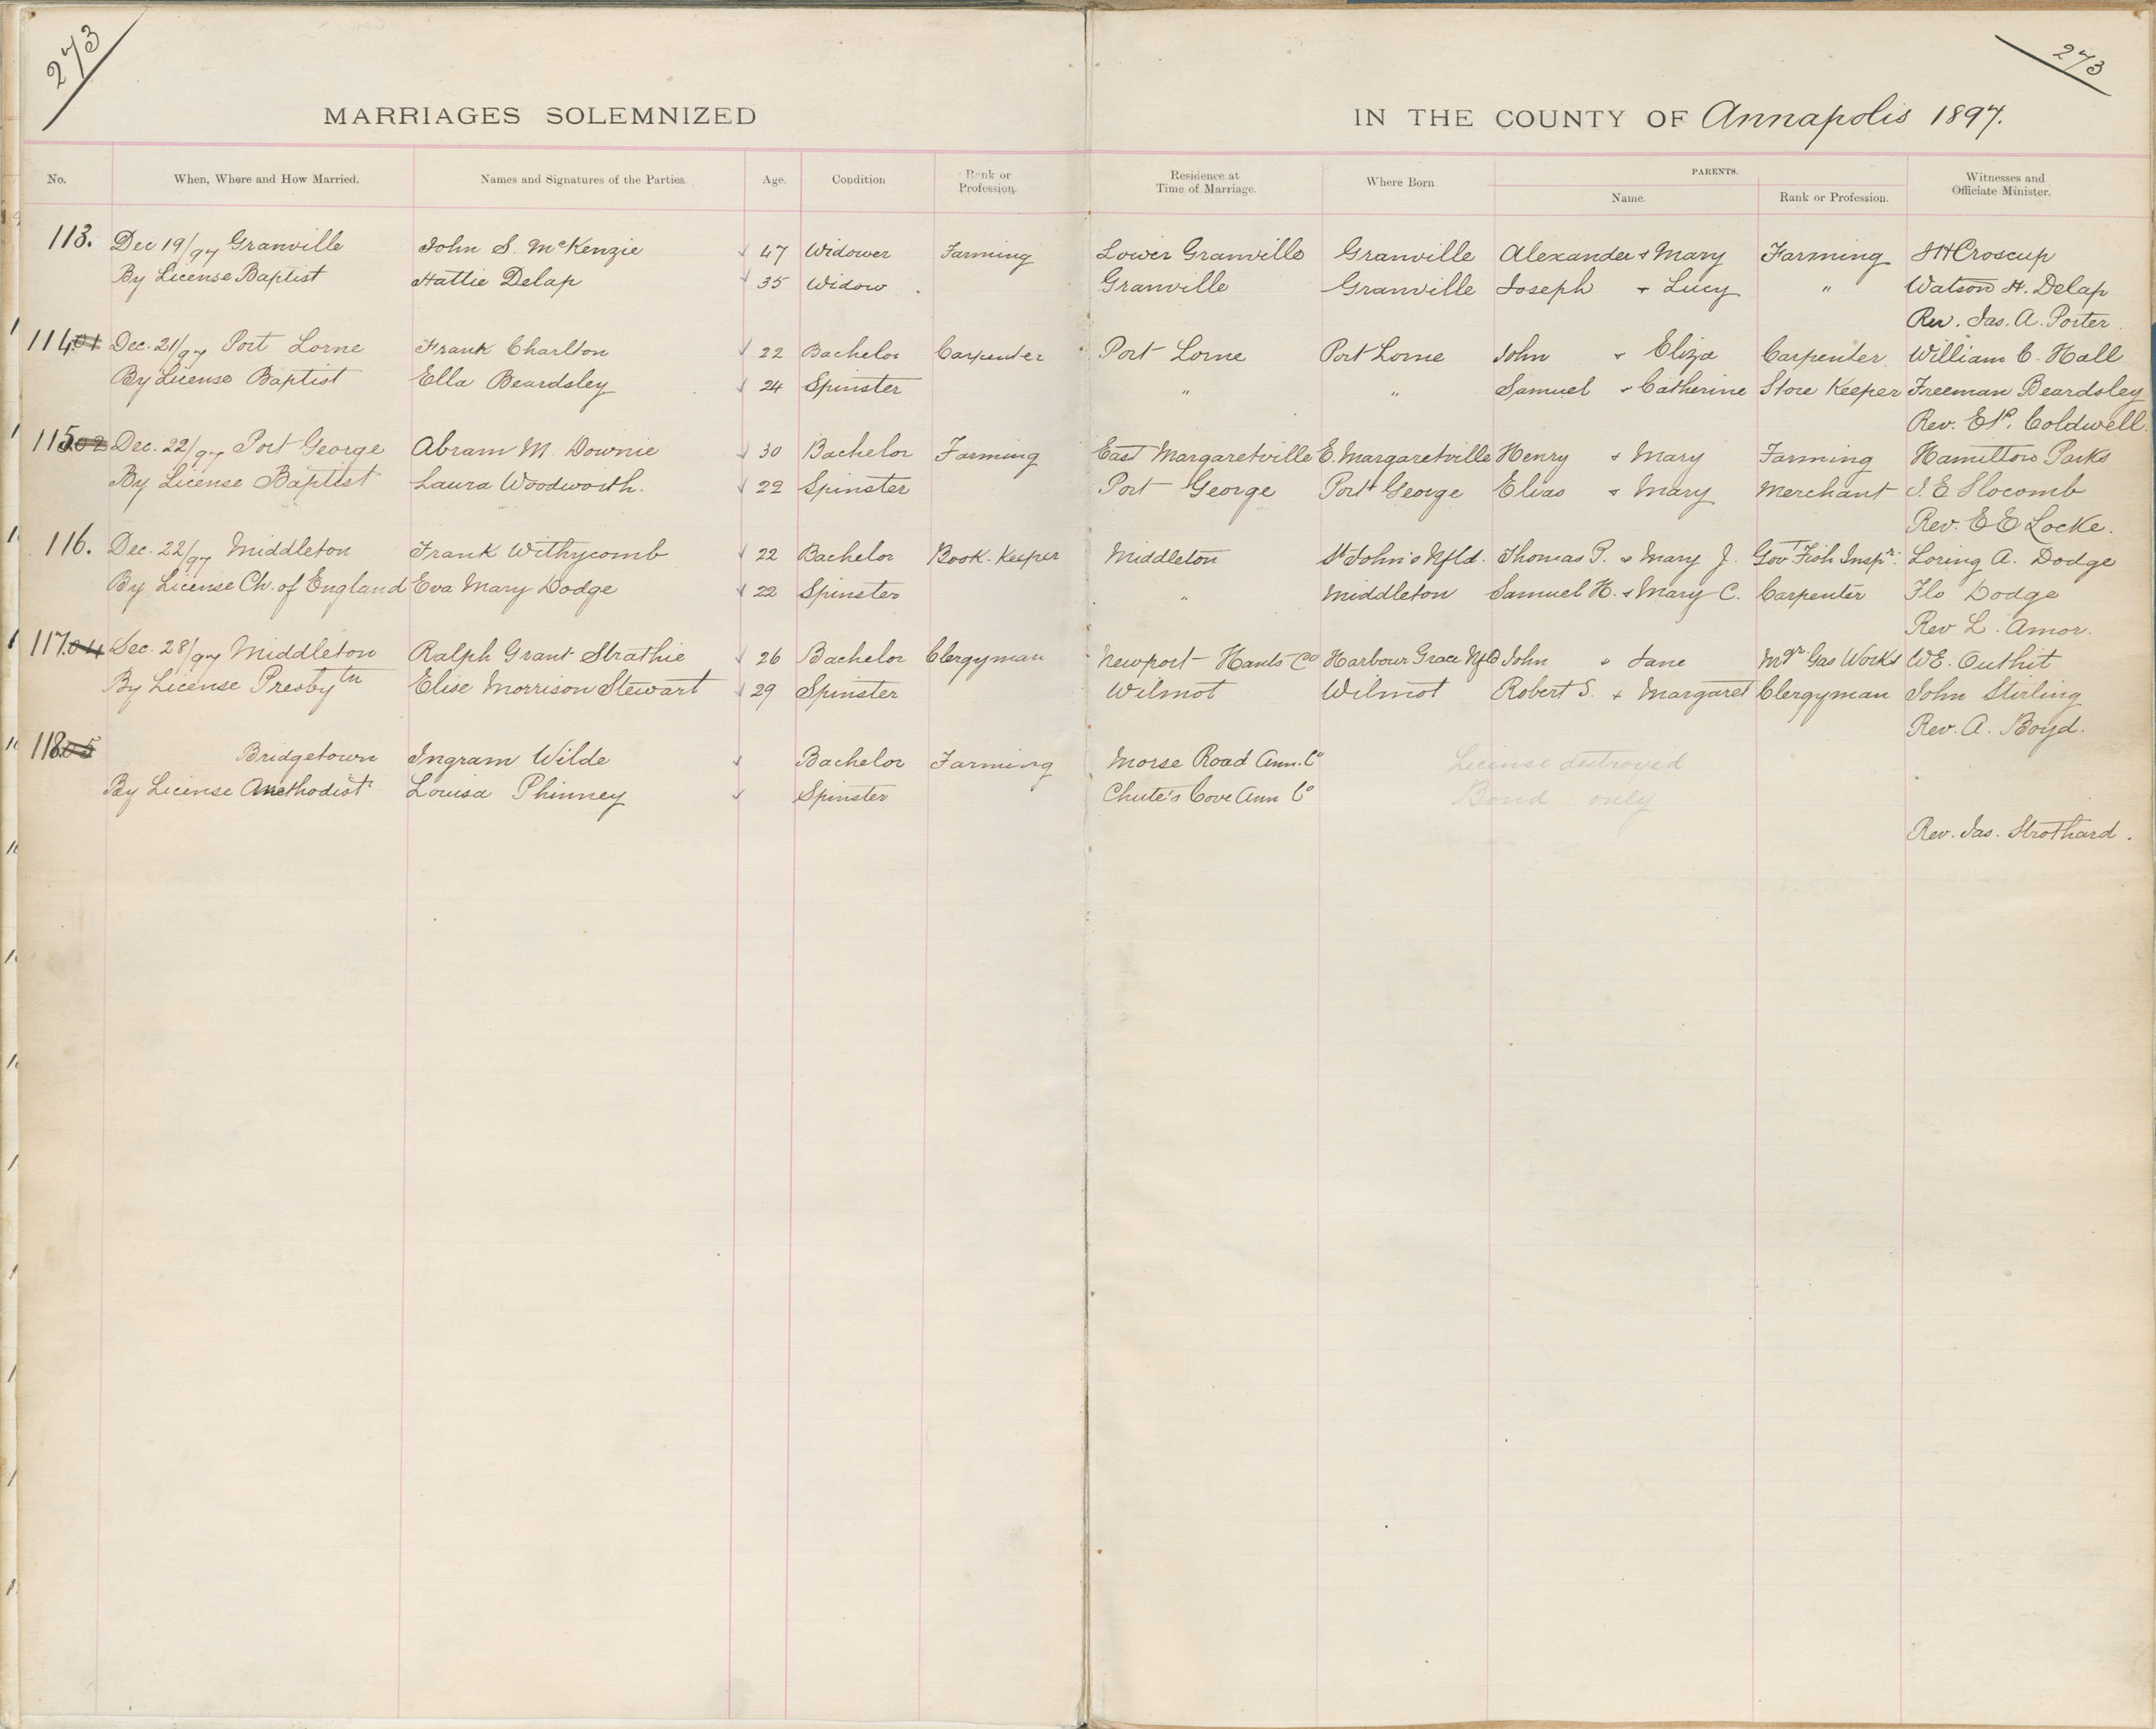 273
273
MARRIAGES SOLEMNIZED
IN THE COUNTY OF Annapolis 1897.
No. When, Where and How Married. Names and Signatures of the Parties Age. Condition Rank or Profession. Residence at Time of Marriage. Where Born PARENTS. Name. Rank or Profession. Witnesses and Officiate Minister.
113. Dec 19/97 Granville John S. McKenzie 47 Widower Farming Lower Granville Granville Alexander & Mary Farming Croscup
By License Baptist Hattie Delap 35 Widow Granville Granville Joseph & Lucy " Watson H. Delap
Rev. Jas. A. Porter
114 Dec. 21/97 Port Lorne Frank Charlton 22 Bachelor Carpenter Port Lorne Port Lorne John & Eliza Carpenter William C. Hall
By License Baptist Ella Beardsley 24 Spinster " " Samuel & Catherine Store Keeper Freeman Beardsley
Rev. E. P. Coldwell.
115 Dec. 22/97 Port George Abram M. Downie 30 Bachelor Farming East Margaretville E. Margaretville Henry & Mary Farming Hamilton Parks
By License Baptist Laura Woodworth. 22 Spinster Port George Port George Elias & Mary Merchant J. E Slocomb
Rev. E E Locke.
116. Dec. 22/97 Middleton Frank Withycomb 22 Bachelor Book-Keeper Middleton St John's Nfld. Thomas P. & Mary J. Govt Fish Inspr. Loring A. Dodge
By License Ch. of England Eva Mary Dodge 22 Spinster " Middleton Samuel H. & Mary C. Carpenter Flo Dodge
Rev L. Amor.
117 Dec. 28/97 Middleton Ralph Grant Strathie 26 Bachelor Clergyman Newport Hants Co Harbour Grace Nfld John & Jane Mgr. Gas Works W E. Outhit
By License Presbytn Elise Morrison Stewart 29 Spinster Wilmot Wilmot Robert S. & Margaret Clergyman John Stirling
Rev. A. Boyd.
118 Bridgetown Ingram Wilde Bachelor Farming Morse Road Ann. Co License destroyed
By License Methodist Louisa Phinney Spinster Chute's Cove Ann Co Bond only
Rev. Jas. Strothard.